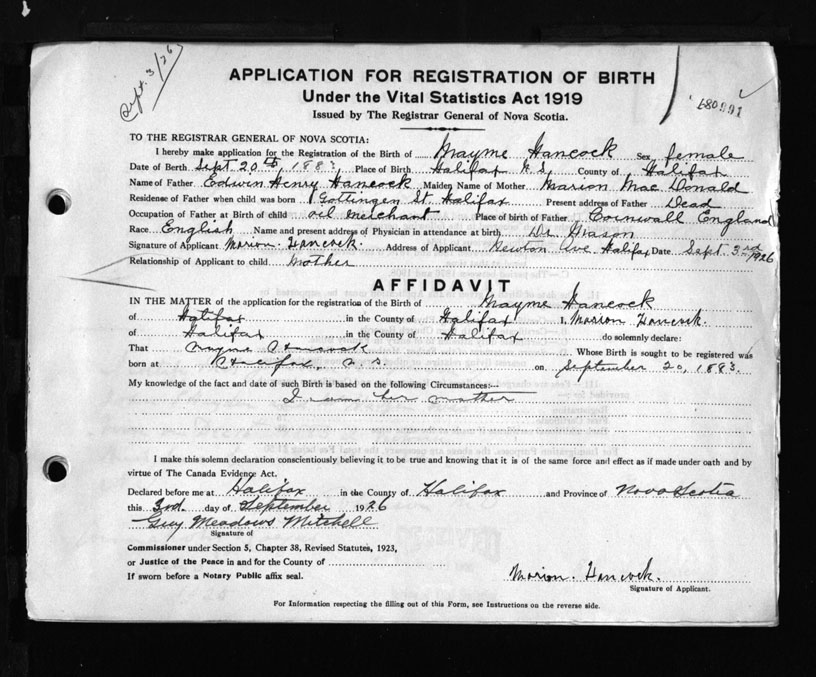 Sept. 3/26
APPLICATION FOR REGISTRATION OF BIRTH
Under the Vital Statistics Act 1919
Issued by The Registrar General of Nova Scotia.
TO THE REGISTRAR GENERAL OF NOVA SCOTIA:
I hereby make application for the Registration of the Birth of Mayme Hancock Sex female
Date of Birth Sept 20th, 1883, Place of Birth Halifax N.S. County of Halifax
Name of Father Edwin Henry Hancock Maiden Name of Mother Marion Mac Donald
Residence of Father when child was born Gottingen St. Halifax Present address of Father Dead
Occupation of Father at Birth of child oil merchant Place of birth of Father Cornwall England
Race English Name and present address of Physician in attendance at birth Dr
Signature of Applicant Marion. Hancock. Address of Applicant Newton Ave Halifax Date Sept. 3rd 1926
Relationship of Applicant to child mother
AFFIDAVIT
IN THE MATTER of the application for the registration of the Birth of Mayme Hancock
of Halifax in the County of Halifax I, Marion Hancock.
of Halifax in the County of Halifax do solemnly declare:
That Mayme Hancock Whose Birth is sought to be registered was
born at Halifax, N.S. on September 20, 1883.
My knowledge of the fact and date of such Birth is based on the following Circumstances:—
I am her mother
I make this solemn declaration conscientiously believing it to be true and knowing that it is of the same force and effect as if made under oath and by
virtue of The Canada Evidence Act.
Declared before me at Halifax in the County of Halifax and Province of Nova Scotia
this 3rd. day of September 1926
Guy Meadows Mitchell
Signature of
Commissioner under Section 5, Chapter 38, Revised Statutes, 1923,
or Justice of the Peace in and for the County of
If sworn before a Notary Public affix seal.
Marion. Hancock.
Signature of Applicant.
For Information respecting the filling out of this Form, see Instructions on the reverse side.